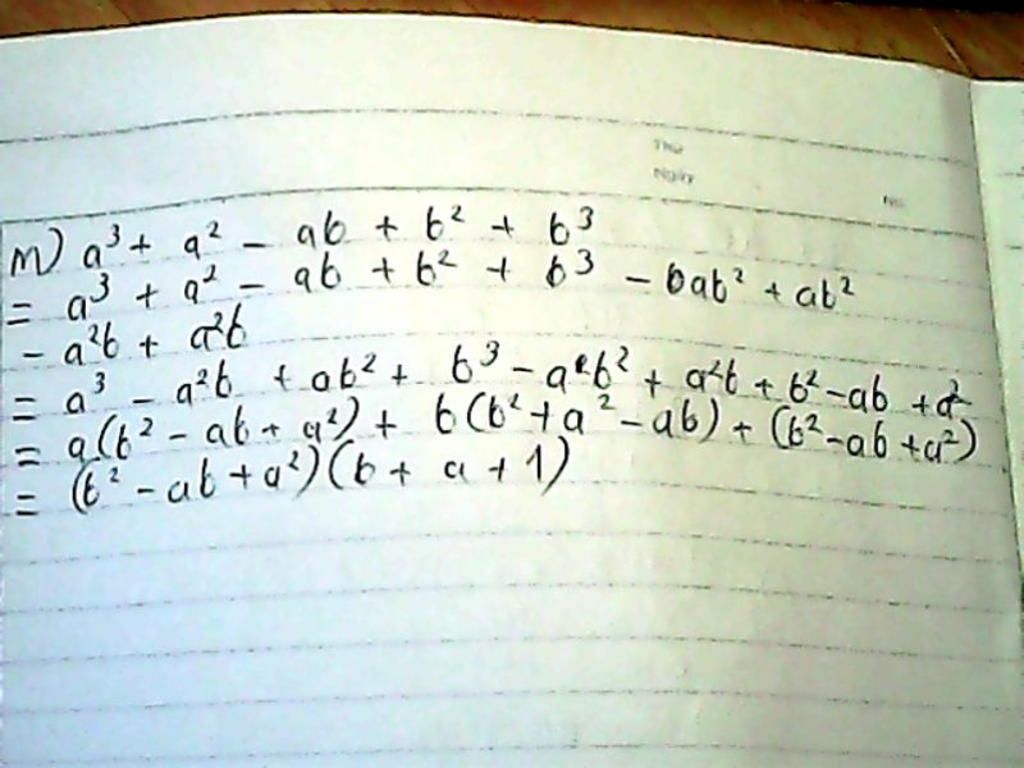 Thứ
Ngày
No.
m) a³ + a² - ab + b² + b³
= a³ + a² - ab + b² + b³ - bab² + ab²
- a²b + a²b
= a³ - a²b + ab² + b³ - a²b² + a²b + b² - ab + a²
= a(b² - ab + a²) + b(b² + a² - ab) + (b² - ab + a²)
= (b² - ab + a²)(b + a + 1)